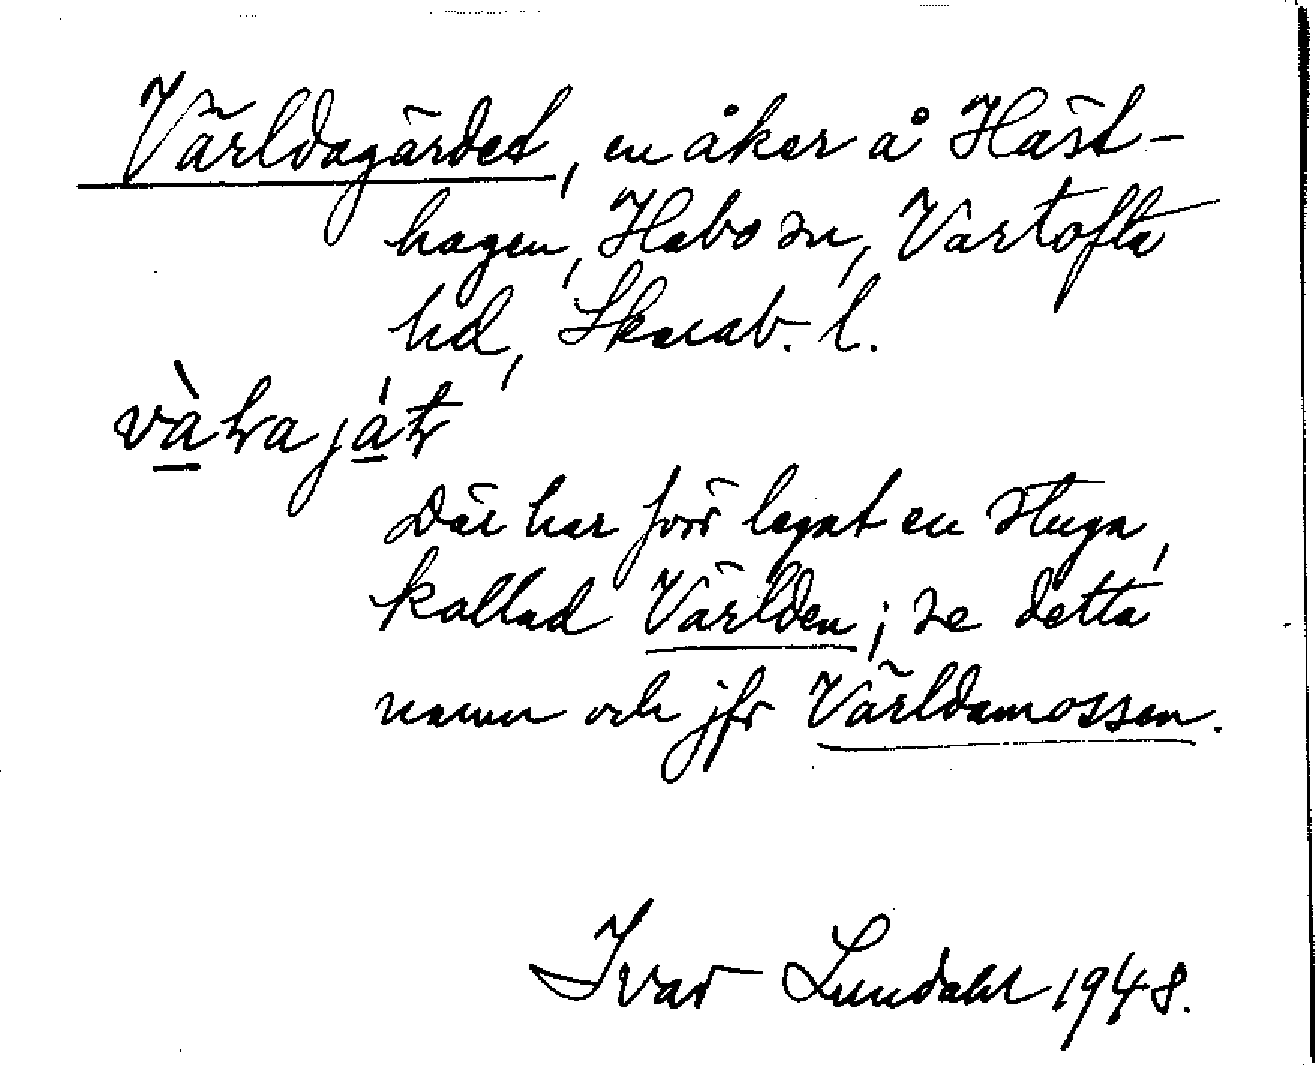 Världagärdet, en åker å Häst-
hagen, Habo sn, Vartofta
hd, Skarab. l.
Där har förr legat en stuga,
kallad Världen; se detta
namn och jfr Världamossen.
Ivar Lundahl 1948.